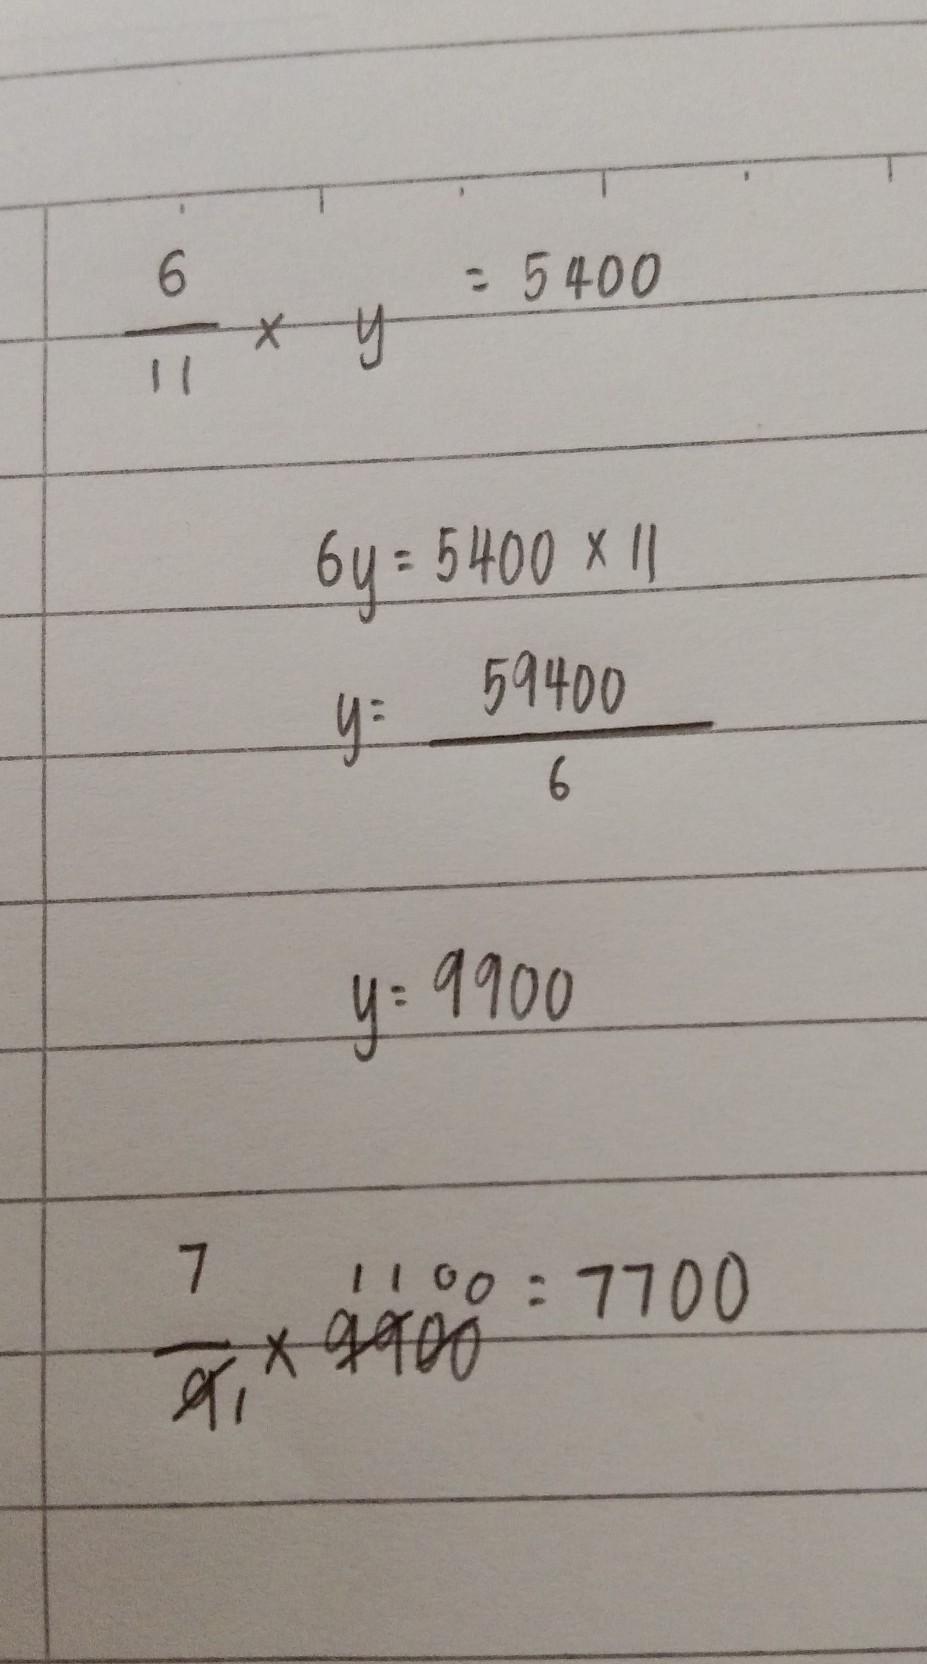 6/11 × y = 5400
6y = 5400 × 11
y = 59400/6
y = 9900
7/9 1 × 9900 1100 = 7700